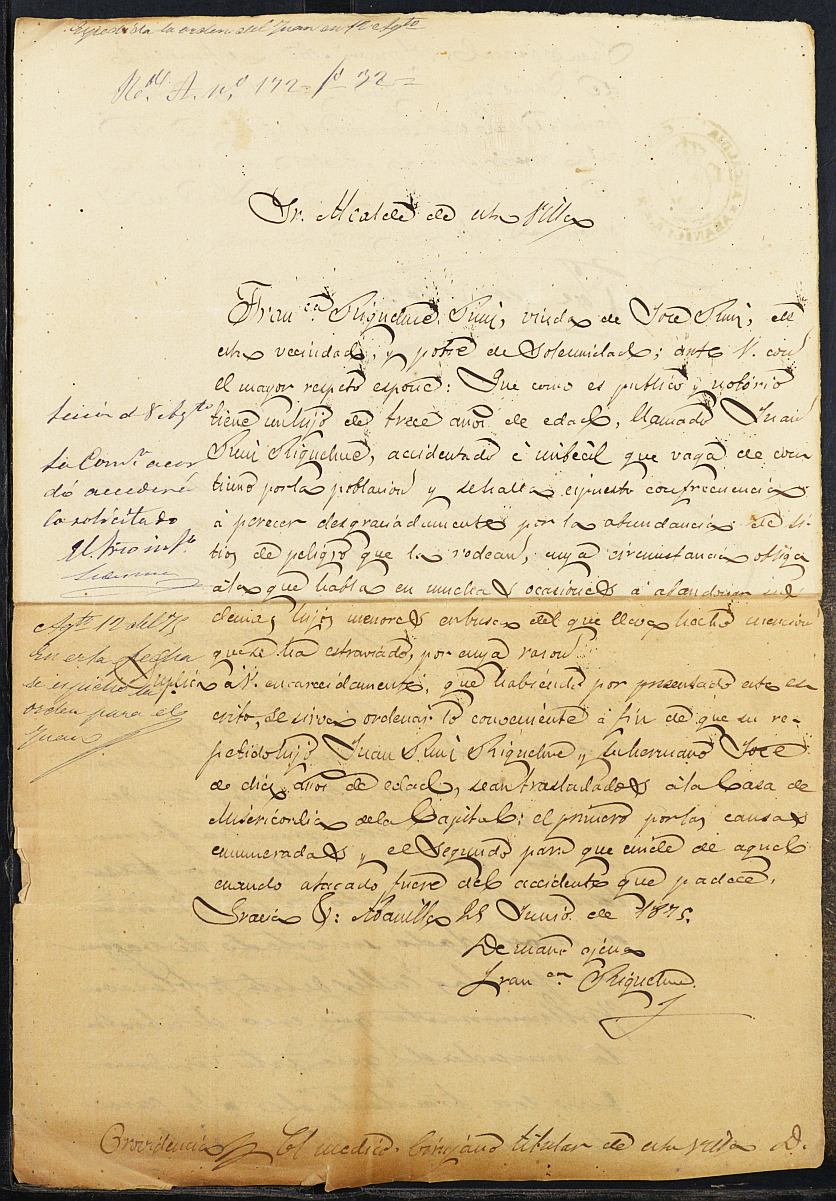 Espedida la orden del Juan en 12 Agto
Rdo. A. nº 172 fº 32
Sr. Alcalde de esta Villa
Franca Riquelme Ruiz, viuda de José Ruiz, de
esta vecindad, y pobre de Solemnidad; ante V. con
el mayor respeto espone: Que como es publico y notorio
tiene un hijo de trece años de edad, llamado Juan
Ruiz Riquelme, accidentado é imbécil que vaga de con
tinuo por la poblacion y se halla espuesto con frecuencia
á perecer desgraciadamente por la abundancia de si
tios de peligro que la rodean, cuya circunstancia obliga
á la que habla en muchas ocasiones á abandonar sus
demas hijos menores en busca del que lleva hecho mencion
que se ha estraviado, por cuya razon
Suplica á V. encarecidamente, que habiendo por presentado este es
crito, se sirva ordenar lo conveniente á fin de que su re-
petido hijo Juan Ruiz Riquelme y su hermano José
de diez años de edad, sean trasladados á la Casa de
Misericordia de la Capital: el primero por las causas
enumeradas y el Segundo para que cuide de aquel
cuando atacado fuere del accidente que padece.
Gracia &: Abanilla 25 Junio de 1875.
De mano agena
Franca Riquelme
Sesion d 8 Agto
La Comn. acor
dó acceder á
lo solicitado
Agto 12 del 75
En esta fecha
se espidió la
orden para el
Juan
Providencia El medico Cirujano titular de esta Villa D.